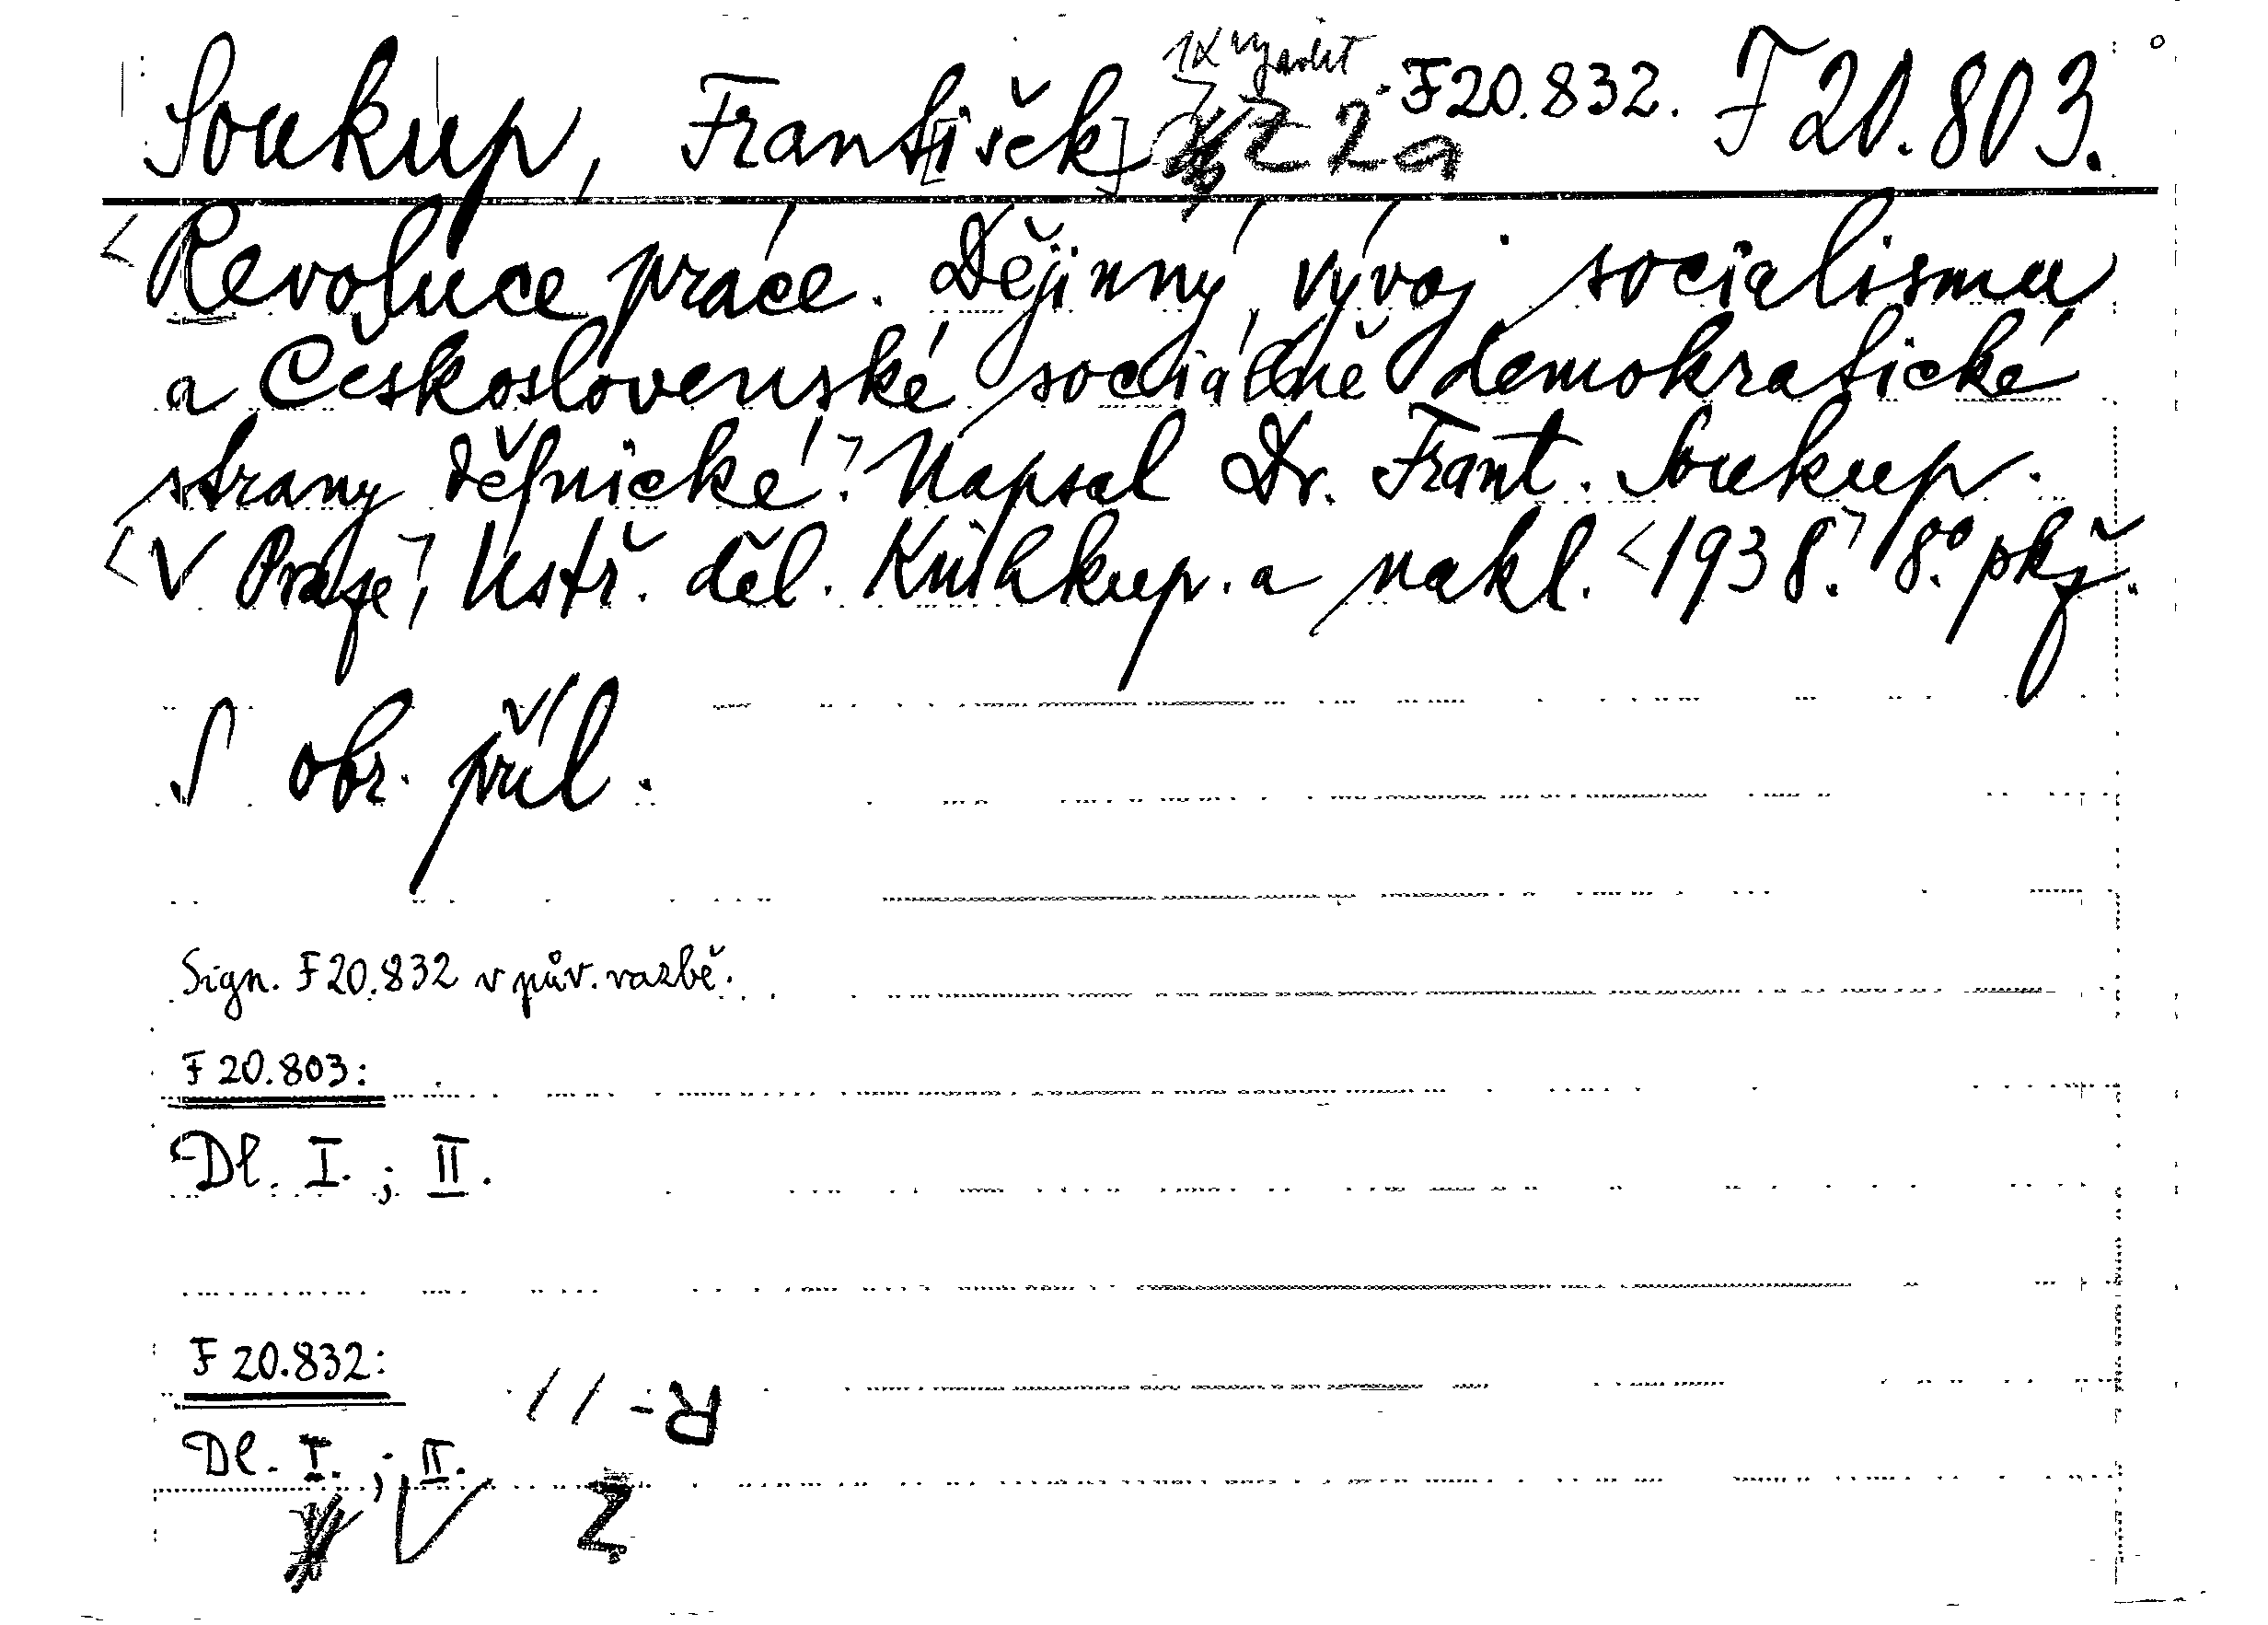 Soukup, Frant[išek] F 20.832. F 20.803.
<Revoluce práce. Dějinný vývoj socialismu
a Československé sociálně demokratické
strany dělnické.> Napsal Dr. Frant. Soukup.
<V Praze>, Ústř. děl. Knihkup. a nakl. <1938.> 8.° pkž.
S obr. příl.
Sign. F 20.832 v pův. vazbě.
F 20.803:
Dl. I. ; II.
F 20.832:
Dl. I. ; II.